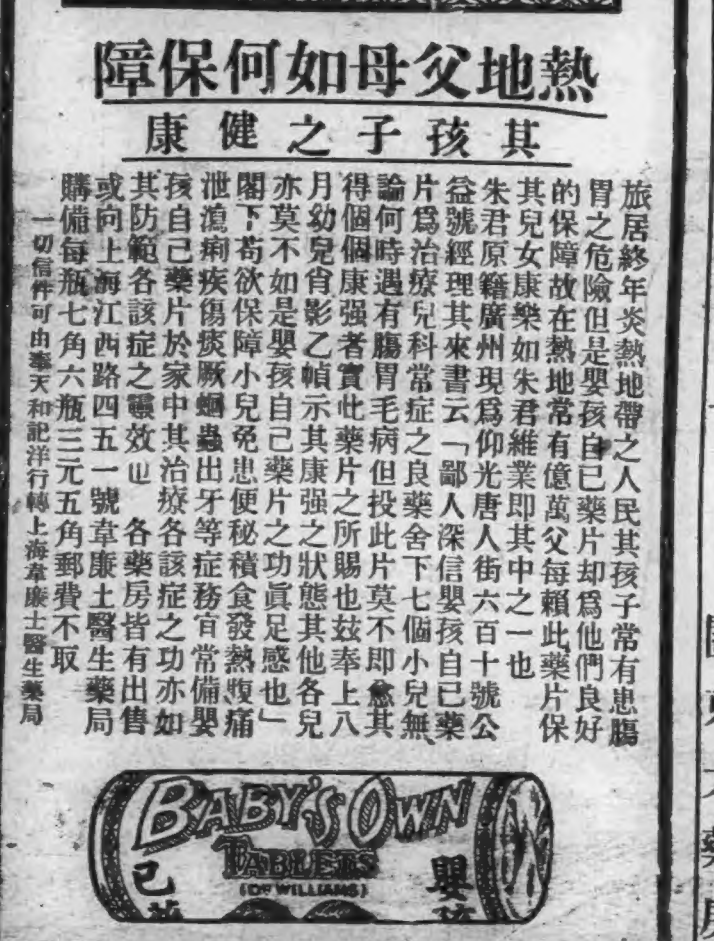 熱地父母如何保障
其孩子之健康
旅居終年炎熱地帶之人民其孩子常有患腸
胃之危險但是嬰孩自己藥片却爲他們良好
的保障故在熱地常有億萬父母賴此藥片保
其兒女康樂如朱君維業即其中之一也
朱君原籍廣州現爲仰光唐人街六百十號公
益號經理其來書云「鄙人深信嬰孩自己藥
片爲治療兒科常症之良藥舍下七個小兒無
論何時遇有腸胃毛病但投此片莫不即愈其
得個個康强者實此藥片之所賜也兹奉上八
月幼兒肖影乙幀示其康强之狀態其他各兒
亦莫不如是嬰孩自己藥片之功眞足感也」
閣下苟欲保障小兒免患便秘積食發熱腹痛
泄瀉痢疾傷痰厥蛔蟲出牙等症務宜常備嬰
孩自己藥片於家中其治療各該症之功亦如
其防範各該症之靈效也 各藥房皆有出售
或向上海江西路四五一號韋廉士醫生藥局
購備每瓶七角六瓶三元五角郵費不取
一切信件可由奉天和記洋行轉上海韋廉士醫生藥局
BABY'S OWN
TABLETS
(OF WILLIAMS)
嬰孩
己藥